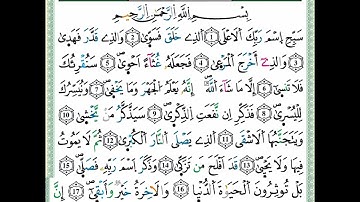 بِسْمِ اللهِ الرَّحْمٰنِ الرَّحِيْمِ
سَبِّحِ اسْمَ رَبِّكَ الْاَعْلَى ١ الَّذِيْ خَلَقَ فَسَوّٰى ٢ وَالَّذِيْ قَدَّرَ فَهَدٰى
٣ وَالَّذِيْٓ اَخْرَجَ الْمَرْعٰى ٤ فَجَعَلَهٗ غُثَآءً اَحْوٰى ٥ سَنُقْرِئُكَ
فَلَا تَنْسٰىٓ ٦ اِلَّا مَا شَآءَ اللهُ اِنَّهٗ يَعْلَمُ الْجَهْرَ وَمَا يَخْفٰى ٧ وَنُيَسِّرُكَ
لِلْيُسْرٰى ٨ فَذَكِّرْ اِنْ نَّفَعَتِ الذِّكْرٰى ٩ سَيَذَّكَّرُ مَنْ يَّخْشٰى ١٠
وَيَتَجَنَّبُهَا الْاَشْقَى ١١ الَّذِيْ يَصْلَى النَّارَ الْكُبْرٰى ١٢ ثُمَّ لَا يَمُوْتُ
فِيْهَا وَلَا يَحْيٰى ١٣ قَدْ اَفْلَحَ مَنْ تَزَكّٰى ١٤ وَذَكَرَ اسْمَ رَبِّهٖ فَصَلّٰى ١٥
بَلْ تُؤْثِرُوْنَ الْحَيٰوةَ الدُّنْيَا ١٦ وَالْاٰخِرَةُ خَيْرٌ وَّاَبْقٰى ١٧ اِنَّ